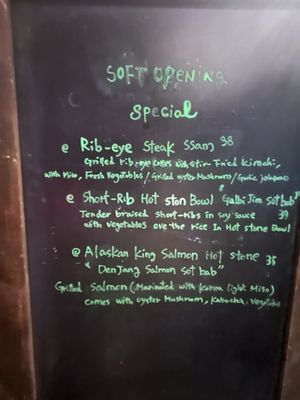 SOFT OPENING
Special
@ Rib-eye Steak Ssam 38
Grilled rib-eye comes with stir-Fried Kimchi,
with Miso, Fresh Vegetables/Grilled oyster Mushrooms/Garlic Jalapenos
@ Short-Rib Hot ston Bowl "Galbi Jim Sot bab"
Tender braised short-ribs in soy sauce 39
with vegetables ove the rice In Hot stone Bowl
@ Alaskan King Salmon Hot stone 35
"DenJang Salmon Sot bab"
Grilled Salmon (Marinated with Korean light Miso)
comes with oyster Mushroom, Kabocha, Vegetables